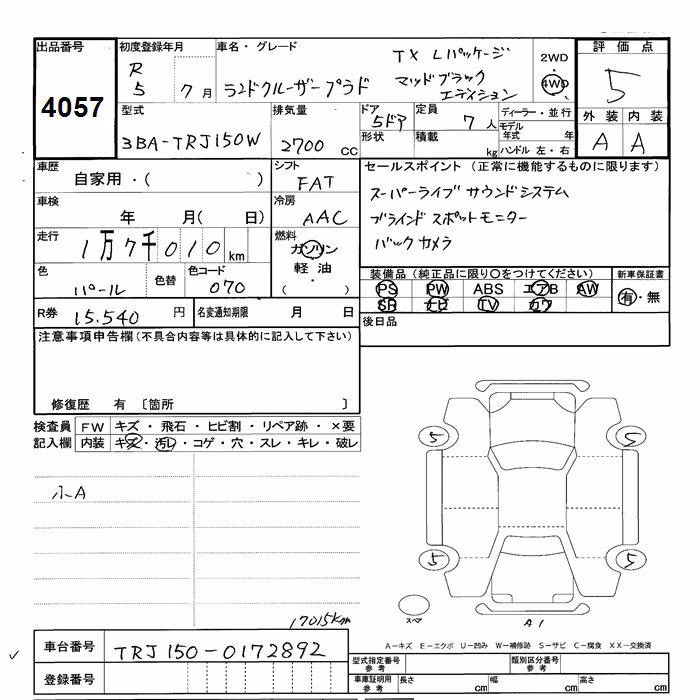 出品番号 初度登録年月 車名・グレード 評価点
4057 R5 7月 ランドクルーザープラド TX Lパッケージ 2WD 5
マッドブラック 4WD
エディション
型式 排気量 ドア 定員 ディーラー・並行 外装 内装
3BA-TRJ150W 2700cc 5ドア 7人 モデル年式 年 A A
形状 積載 kg ハンドル 左・右
車歴 シフト セールスポイント (正常に機能するものに限ります)
自家用・( ) FAT スーパーライブサウンドシステム
車検 冷房 ブラインドスポットモニター
年 月( 日) AAC バックカメラ
走行 燃料
1万7千010km ガソリン
軽油
( ・ )
色 色替 色コード 装備品(純正品に限り○をつけてください) 新車保証書
パール 070 PS PW ABS エアB AW 有・無
SR ナビ TV カワ
R券 15.540円 名変通知期限 月 日 後日品
注意事項申告欄(不具合内容等は具体的に記入して下さい)
修復歴 有 〔箇所 〕
検査員 FW キズ・飛石・ヒビ割・リペア跡・×要
記入欄 内装 キズ・汚レ・コゲ・穴・スレ・キレ・破レ
5 5
小A
5 5
17015km
スペア A1
車台番号 TRJ150-0172892
A-キズ E-エクボ U-凹み W-補修跡 S-サビ C-腐食 XX-交換済
型式指定番号 参考 類別区分番号 参考
登録番号
車庫証明用 参考 長さ cm 幅 cm 高さ cm